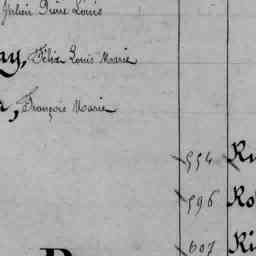 Julien Pierre Louis
ay, Félix Louis Marie
, François Marie
554 Ru
596 Ro
607 Ri